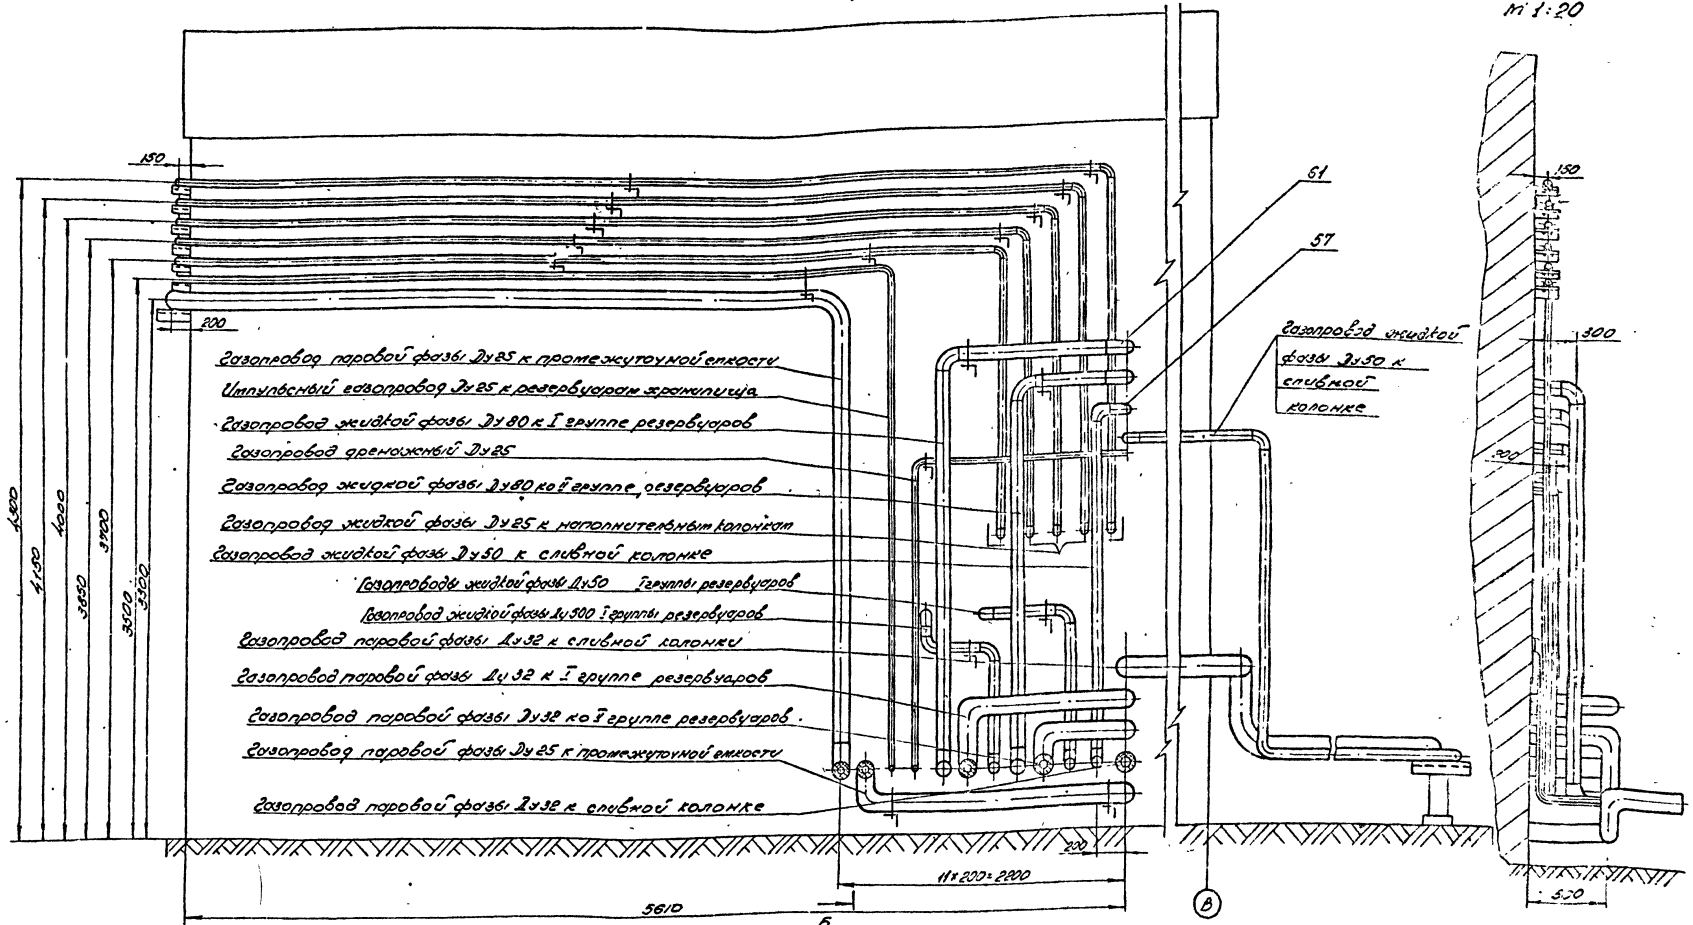 М 1:20
150
61
150
57
200
Газопровод жидкой
фазы Ду50 к
сливной
колонке
300
Газопровод паровой фазы Ду25 к промежуточной емкости
Импульсный газопровод Ду25 к резервуарам хранилища
Газопровод жидкой фазы Ду80 к I группе резервуаров
Газопровод дренажный Ду25
200
Газопровод жидкой фазы Ду80 ко II группе резервуаров
Газопровод жидкой фазы Ду25 к наполнительным колонкам
Газопровод жидкой фазы Ду50 к сливной колонке
Газопроводы жидкой фазы Ду50 I группы резервуаров
Газопровод жидкой фазы Ду50 I группы резервуаров
Газопровод паровой фазы Ду32 к сливной колонки
Газопровод паровой фазы Ду32 к I группе резервуаров
Газопровод паровой фазы Ду32 ко II группе резервуаров
Газопровод паровой фазы Ду25 к промежуточной емкости
Газопровод паровой фазы Ду32 к сливной колонке
4300
4150
4000
3850
3700
3500
3300
200
11×200=2200
5610
Б
В
500